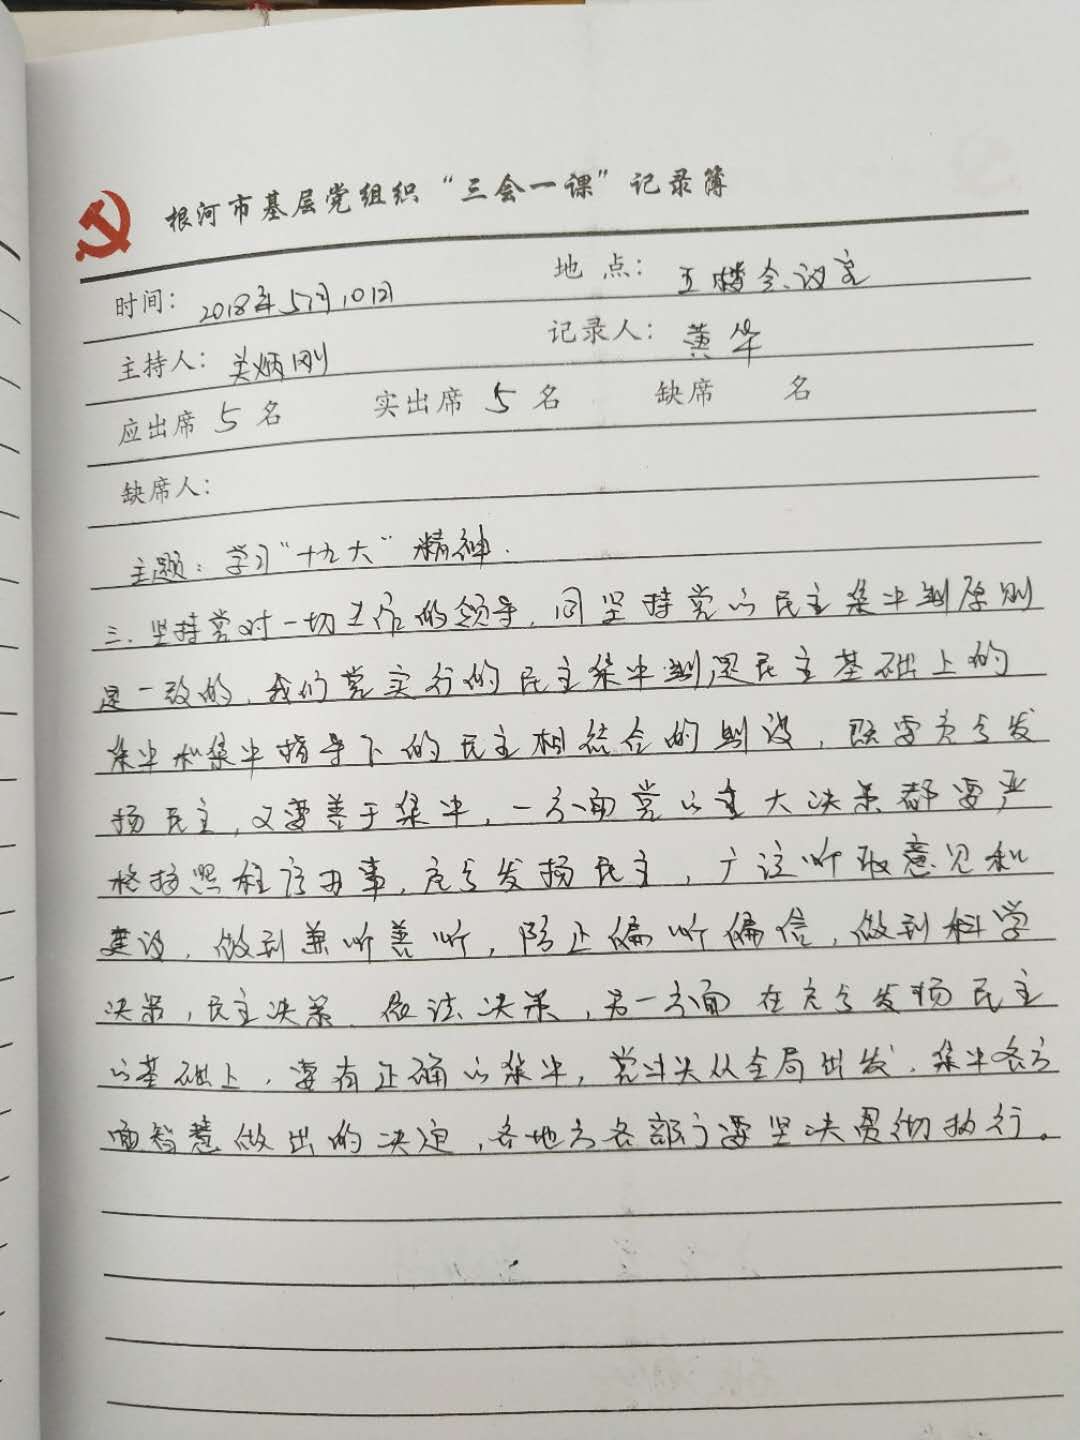 根河市基层党组织“三会一课”记录簿
时间：2018年5月10日 地点：五楼会议室
主持人：关炳刚 记录人：黄华
应出席 5 名 实出席 5 名 缺席 名
缺席人：
主题：学习“十九大”精神.
三.坚持党对一切工作的领导,同坚持党的民主集中制原则
是一致的,我们党实行的民主集中制,是民主基础上的
集中和集中指导下的民主相结合的制度,既要充分发
扬民主,又要善于集中,一方面党的重大决策都要严
格按照程序办事,充分发扬民主,广泛听取意见和
建议,做到兼听善听,防止偏听偏信,做到科学
决策,民主决策.依法决策,另一方面在充分发扬民主
的基础上,要有正确的集中,党中央从全局出发,集中各方
面智慧做出的决定,各地方各部门要坚决贯彻执行。